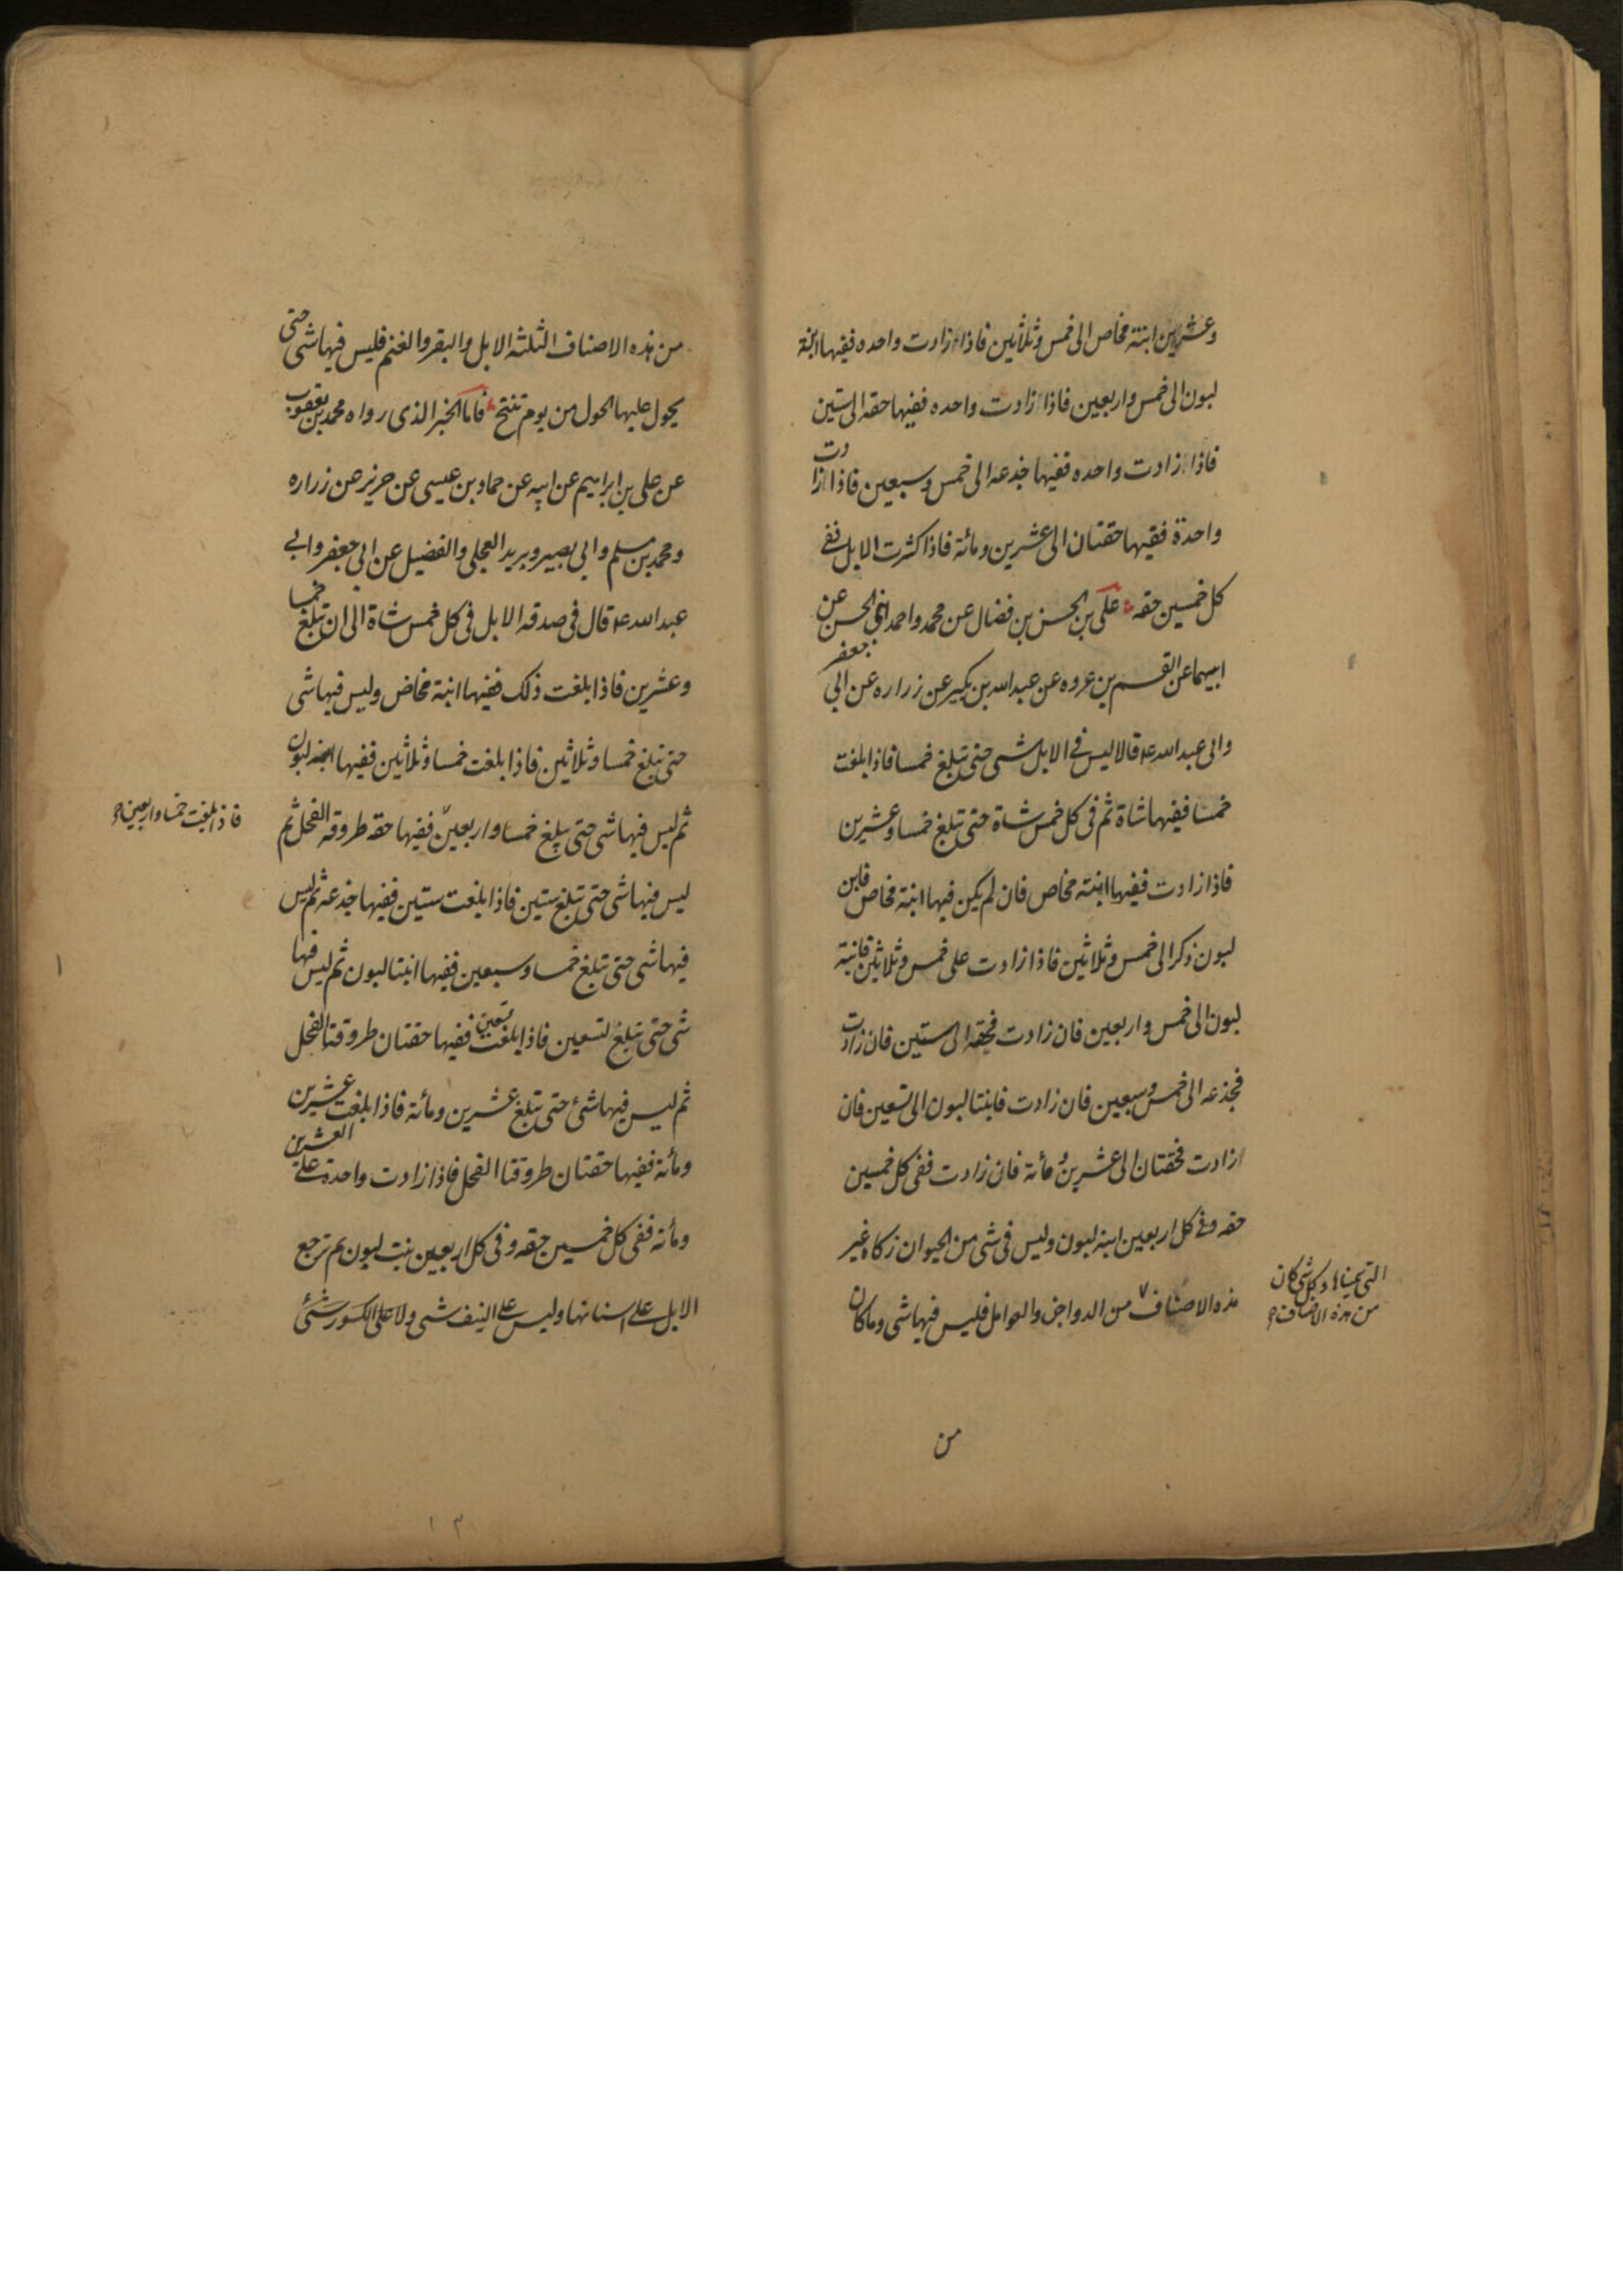 وعشرين ابنة مخاض الى خمس وثلاثين فاذا زادت واحده ففيها ابنة
لبون الى خمس واربعين فاذا زادت واحده ففيها حقه الى ستين
فاذا زادت واحده ففيها جذعه الى خمس وسبعين فاذا زادت
واحدة ففيها حقتان الى عشرين ومائة فاذا كثرت الابل ففي
كل خمسين حقه علي بن الحسن بن فضال عن محمد واحمد ابني الحسن عن
ابيهما عن القسم بن عروه عن عبد الله بن بكير عن زراره عن ابي جعفر
وابى عبد الله ع قالا ليس في الابل شى حتى تبلغ خمسا فاذا بلغت
خمسا ففيها شاة ثم فى كل خمس شاة حتى تبلغ خمسا وعشرين
فاذا زادت ففيها ابنة مخاض فان لم يكن فيها ابنة مخاض فابن
لبون ذكر الى خمس وثلاثين فاذا زادت على خمس وثلاثين فابنة
لبون الى خمس واربعين فان زادت فحقه الى ستين فان زادت
فجذعه الى خمس وسبعين فان زادت فابنتا لبون الى تسعين فان
زادت فحقتان الى عشرين ومائة فان زادت ففى كل خمسين
حقه وفي كل اربعين ابنة لبون وليس فى شى من الحيوان زكاة غير
هذه الاصناف من الدواجن والعوامل فليس فيها شى وما كان
التي سمينا وكل شى كان
من هذه الاصناف
من
من هذه الاصناف الثلثه الابل والبقر والغنم فليس فيها شى حتى
يحول عليها الحول من يوم تنتج فاما الخبر الذى رواه محمد بن يعقوب
عن على بن ابراهيم عن ابيه عن حماد بن عيسى عن حريز عن زراره
ومحمد بن مسلم وابي بصير وبريد العجلى والفضيل عن ابي جعفر وابي
عبد الله ع قال فى صدقه الابل فى كل خمس شاة الى ان تبلغ خمسا
وعشرين فاذا بلغت ذلك ففيها ابنة مخاض وليس فيها شى
حتى تبلغ خمسا وثلاثين فاذا بلغت خمسا وثلاثين ففيها ابنة لبون
ثم ليس فيها شى حتى تبلغ خمسا واربعين ففيها حقه طروقه الفحل ثم
فاذا بلغت خمسا واربعين
ليس فيها شى حتى تبلغ ستين فاذا بلغت ستين ففيها جذعه ثم ليس
فيها شى حتى تبلغ خمسا وسبعين ففيها ابنتا لبون ثم ليس فيها
شى حتى تبلغ تسعين فاذا بلغت تسعين ففيها حقتان طروقتا الفحل
ثم ليس فيها شئ حتى تبلغ عشرين ومائة فاذا بلغت عشرين
ومائة ففيها حقتان طروقتا الفحل فاذا زادت واحدة على العشرين
ومائة ففى كل خمسين حقه وفى كل اربعين بنت لبون ثم ترجع
الابل على اسنانها وليس على النيف شى ولا على الكسور شئ